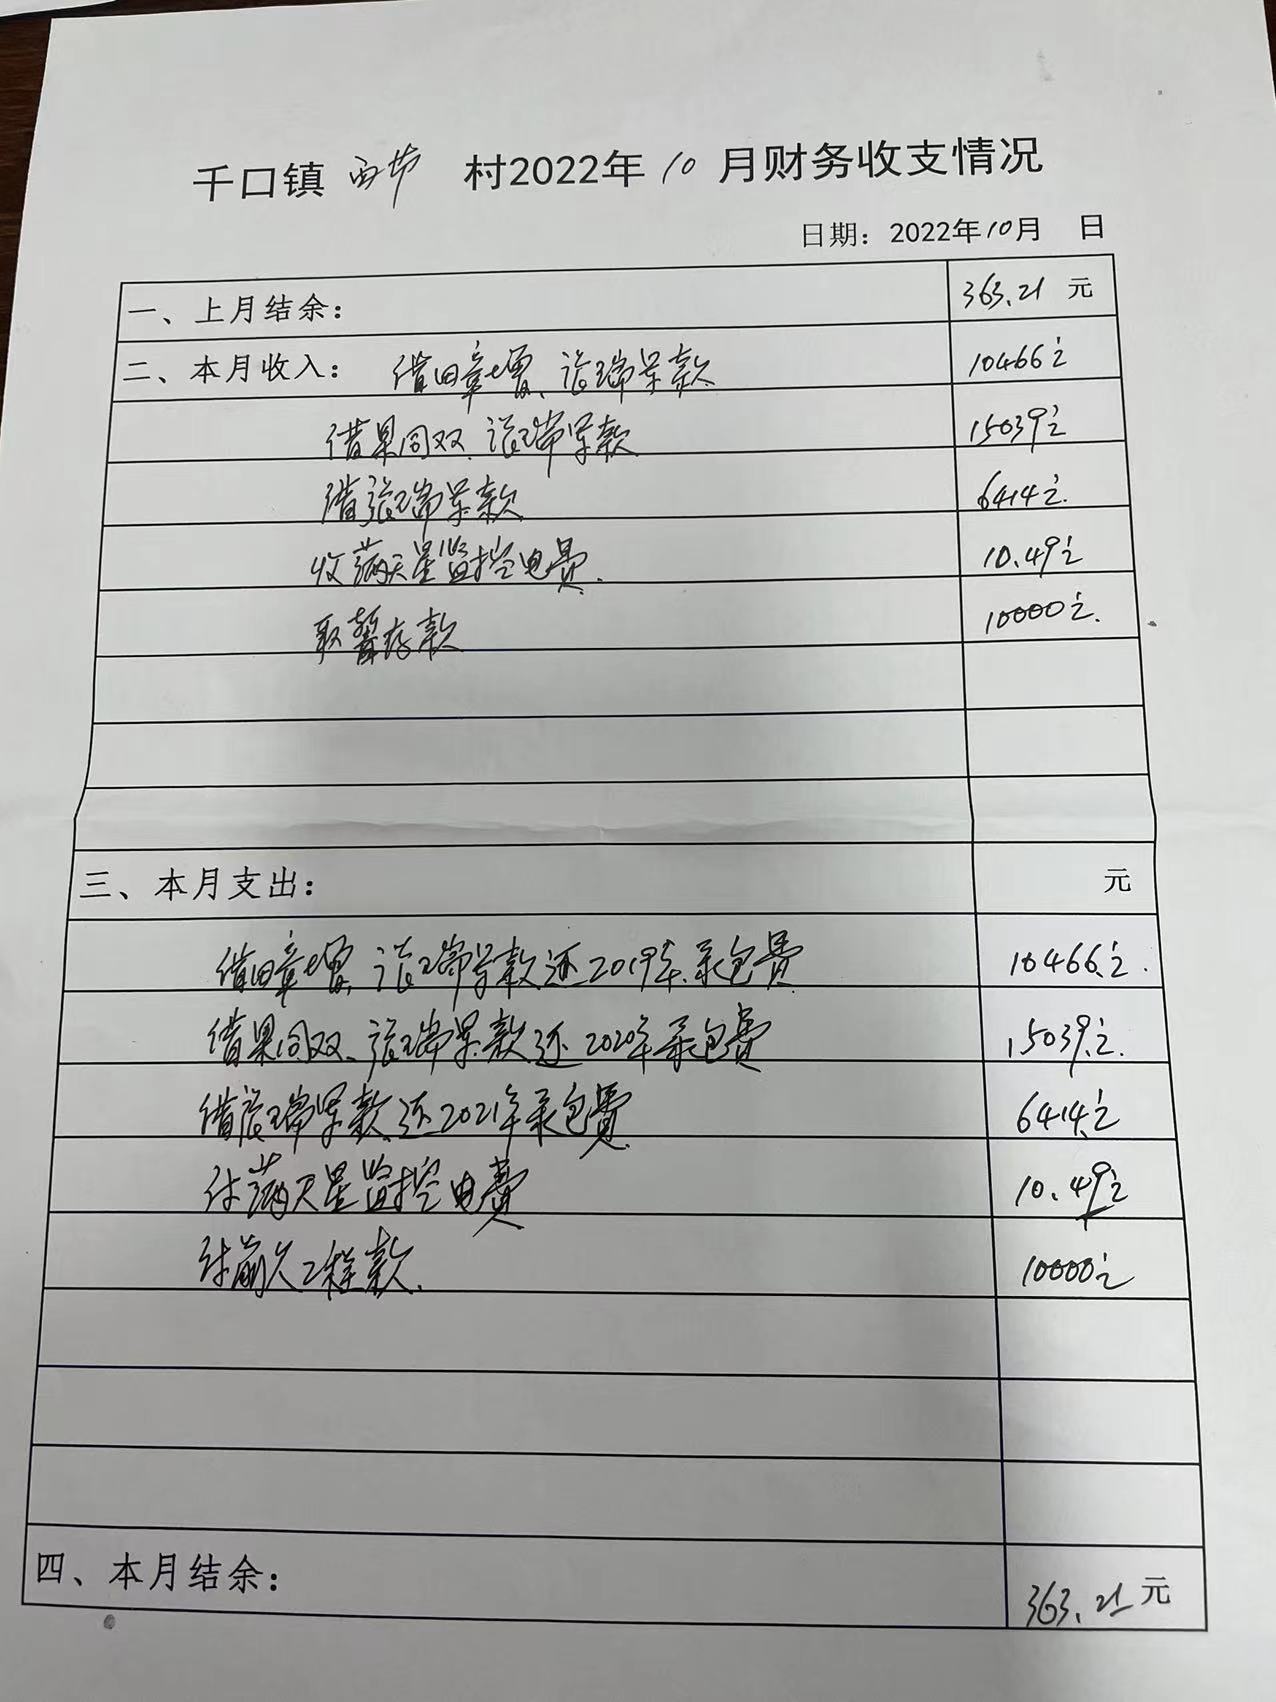 千口镇 西节 村2022年10月财务收支情况
日期：2022年10月 日
一、上月结余： 363.21 元
二、本月收入： 借田章增、张瑞景款 10466元
借果同双、张瑞景款 15039元
借张瑞景款 6414元.
收满天星监控电费. 10.49元
取暂存款 10000元.
三、本月支出： 元
借田章增、张瑞景款还2019年承包费 10466元.
借果同双、张瑞景款还2020年承包费 15039元.
借张瑞景款还2021年承包费 6414元
付满天星监控电费. 10.49元
付前欠工程款. 10000元
四、本月结余： 363.21元